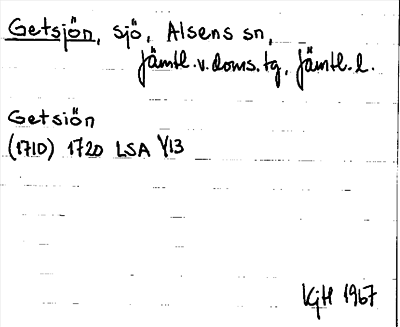 Getsjön, sjö, Alsens sn,
Jämtl. v. doms. tg, Jämtl. l.
Getsiön
(1710) 1720 LSA Y13
KjH 1967